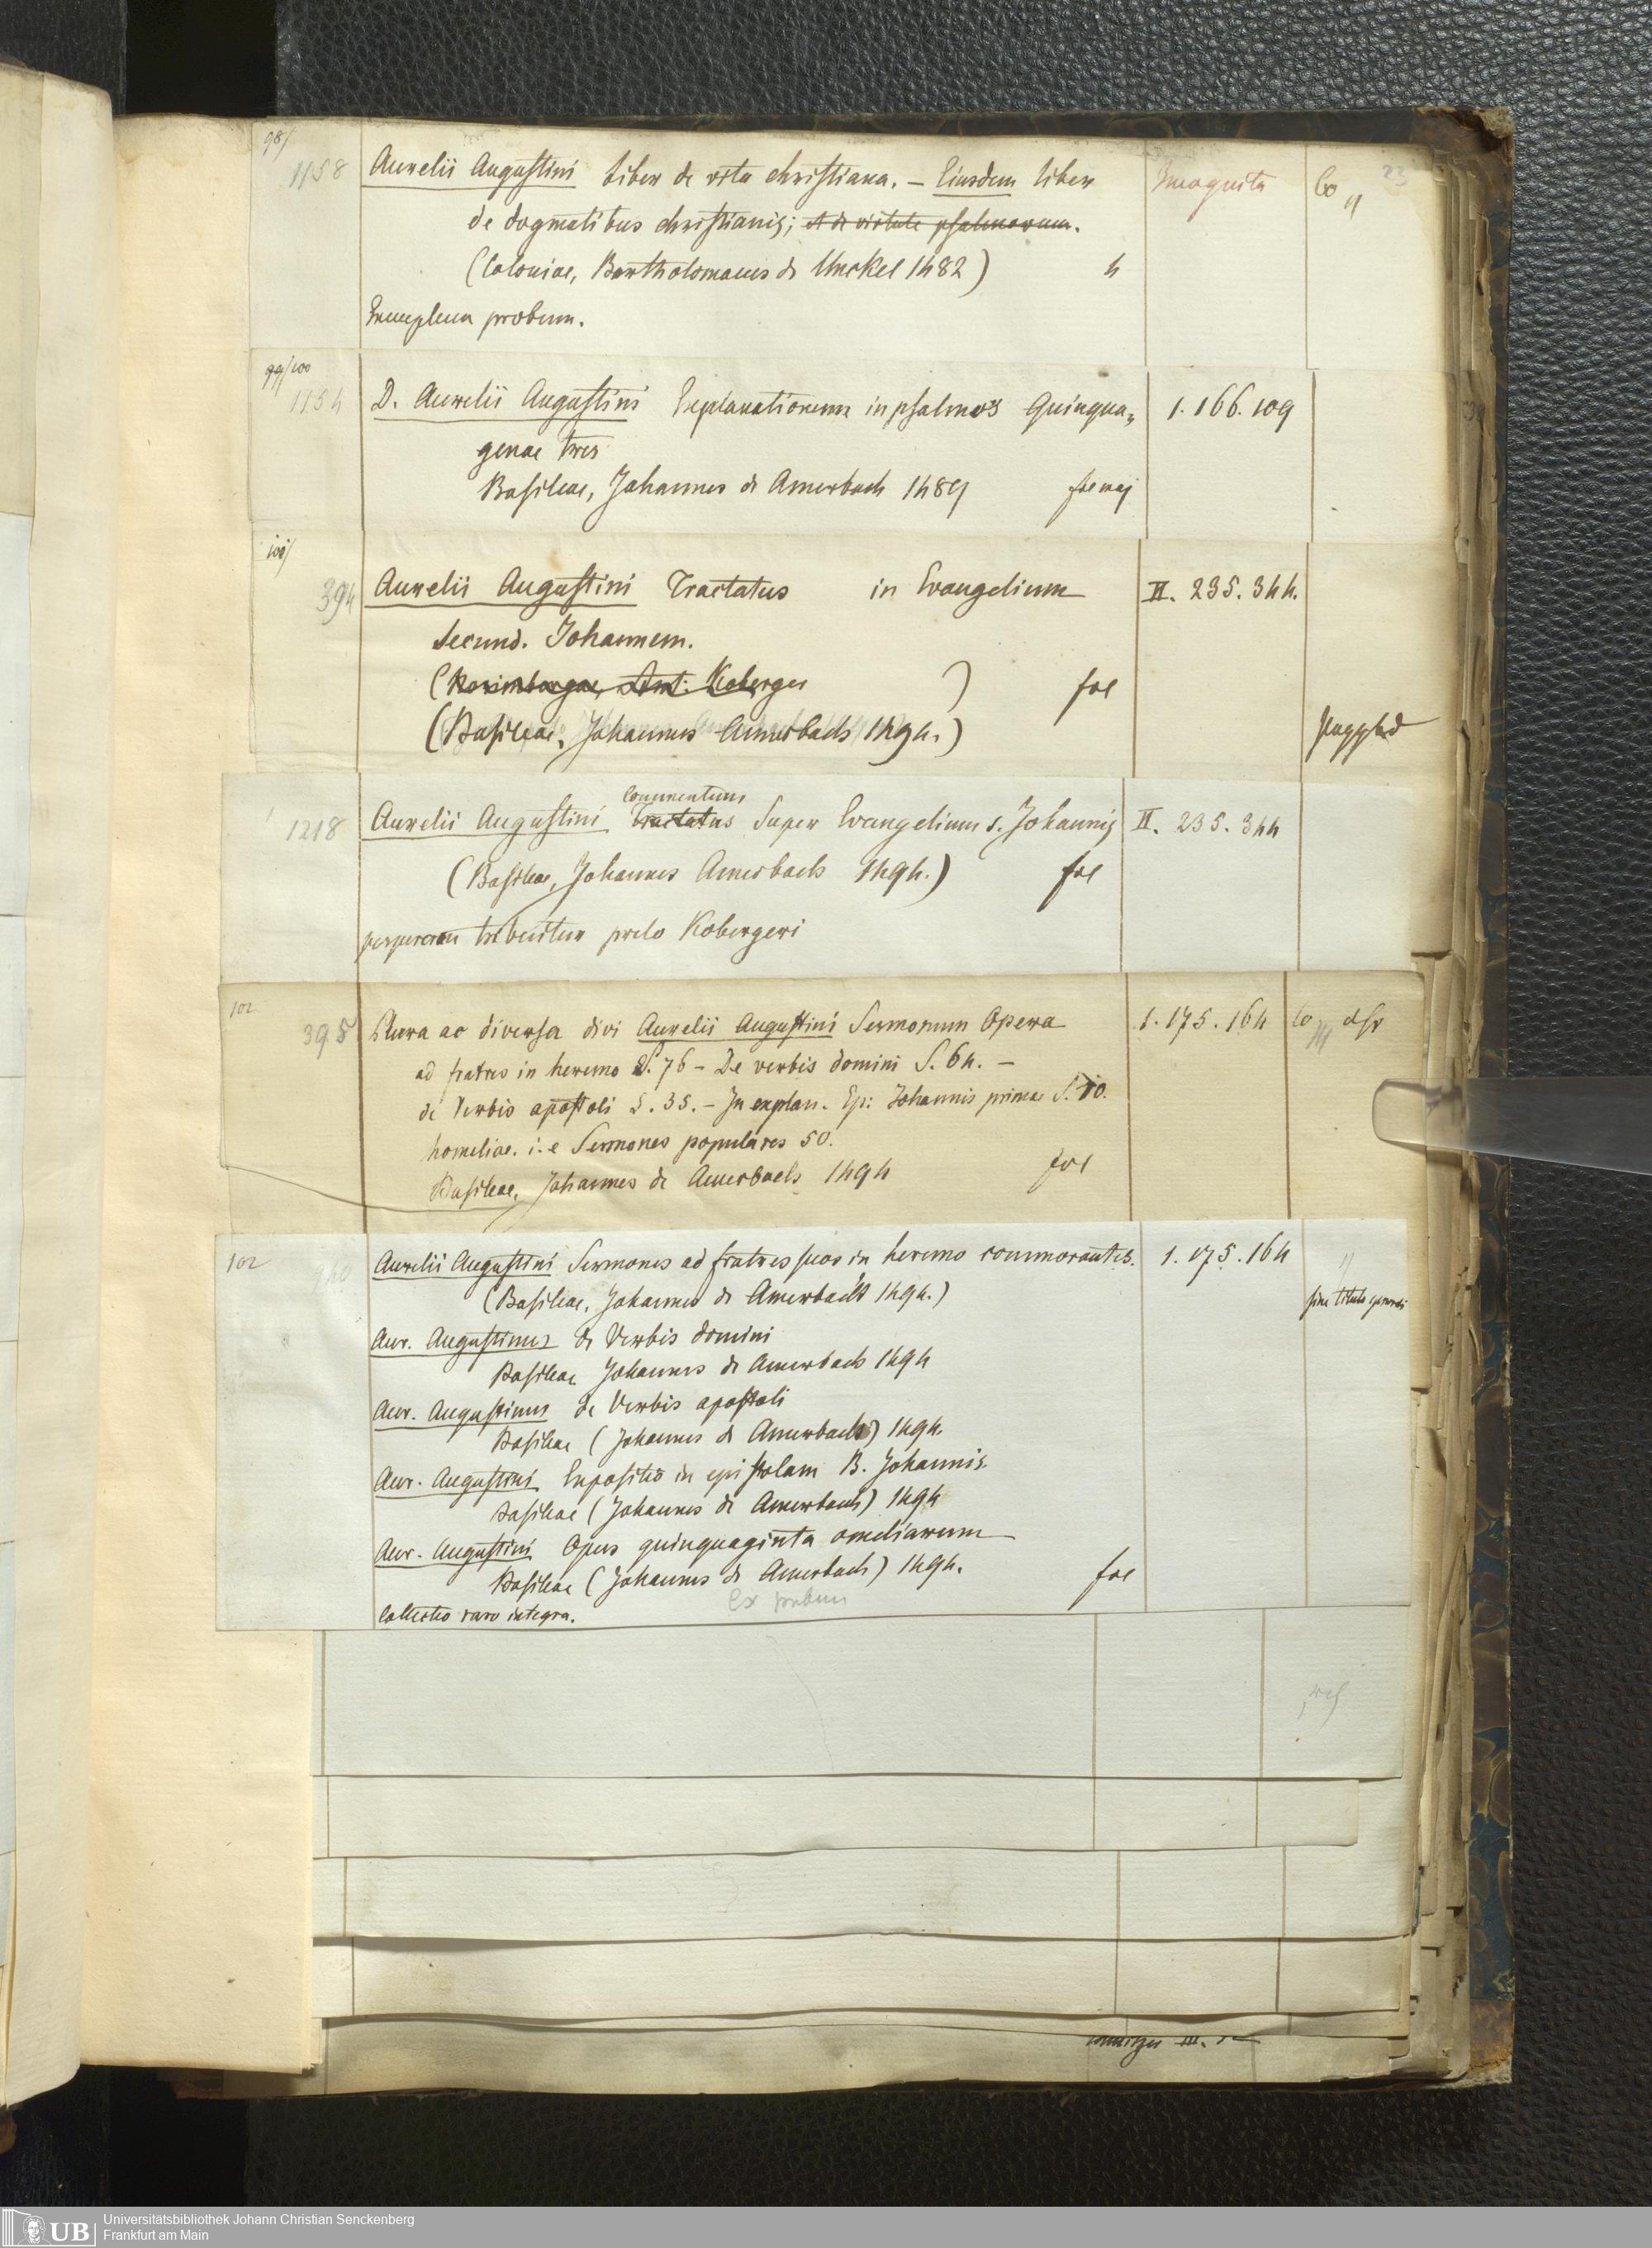 98/
1158 Aurelii Augustini Liber de vita christiana. – Eiusdem liber Incognita Co 23
de dogmatibus christianis; et de virtute psalmorum.
(Coloniae, Bartholomaeus de Unckel 1482) 4
Exemplum probum.
99/100
1154 D. Aurelii Augustini Explanationum in psalmos Quinqua„ 1. 166. 109
genae tres
Basileae, Johannes de Amerbach 1489 fol maj
101/
394 Aurelii Augustini Tractatus in Evangelium II. 235. 344.
secund. Johannem.
(Norimbergae, Ant: Koberger ) fol
(Basileae, Johannes Amerbach 1494.)
commentum
1218 Aurelii Augustini Tractatus super Evangelium s. Johannis II. 235. 344
(Basileae, Johannes Amerbach 1494.) fol
perperam tribuitur prelo Kobergeri
102
395 Plura ac diversa divi Aurelii Augustini Sermonum Opera 1. 175. 164 Co
ad fratres in heremo S. 76 – De verbis domini S. 64. –
de Verbis apostoli S. 35. – In explan. Ep: Johannis primae S. 10.
homeliae. i. e Sermones populares 50.
Basileae, Johannes de Amerbach 1494 fol
102
940 Aurelii Augustini Sermones ad fratres suos in heremo commorantes. 1. 175. 164
(Basileae, Johannes de Amerbach 1494.) sine titulo generali
Aur. Augustinus de Verbis domini
Basileae Johannes de Amerbach 1494
Aur. Augustinus de Verbis apostoli
Basileae (Johannes de Amerbach) 1494.
Aur. Augustini Expositio in epistolam B. Johannis.
Basileae (Johannes de Amerbach) 1494
Aur. Augustini Opus quinquaginta omeliarum
Basileae (Johannes de Amerbach) 1494. fol
Collectio raro integra. Ex probum
UB Universitätsbibliothek Johann Christian Senckenberg
Frankfurt am Main